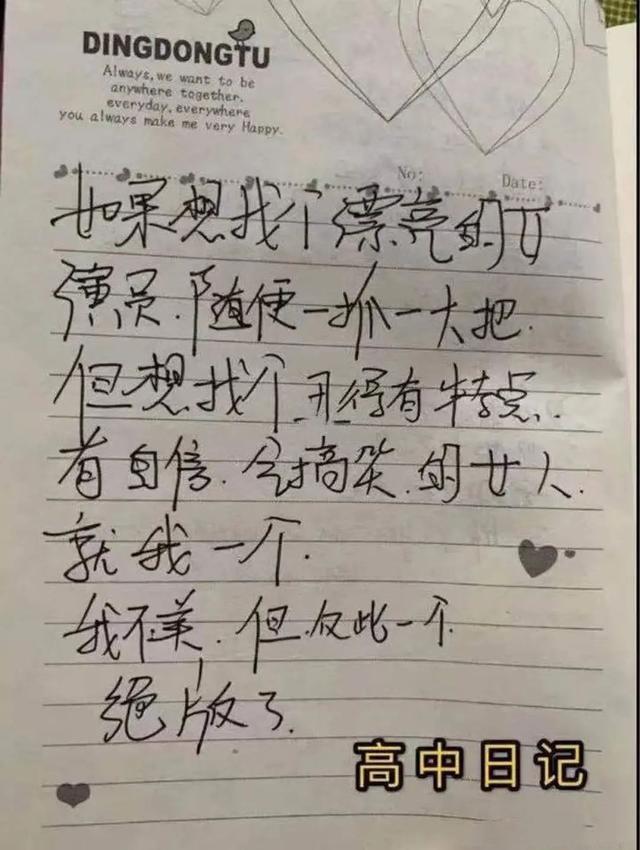 DINGDONGTU
Always, we want to be
anywhere together.
everyday, everywhere
you always make me very Happy.
No:
Date:
如果想找个漂亮的女
演员.随便一抓一大把.
但想找个丑得有特点.
有自信.会搞笑.的女人.
就我一个.
我不美.但.仅此一个.
绝版了.
高中日记